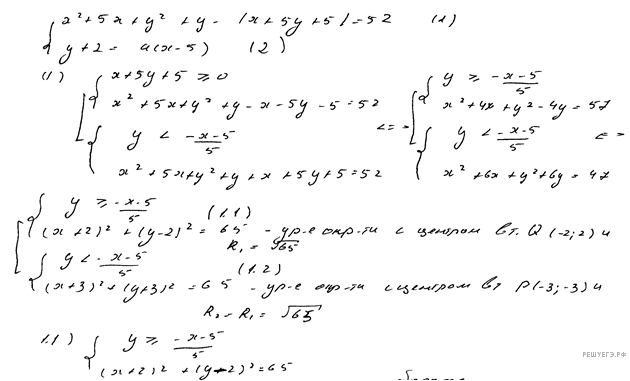 { x² + 5x + y² + y - |x + 5y + 5| = 52 (1)
{ y + 2 = a(x - 5) (2)
(1) [ { x + 5y + 5 ≥ 0
x² + 5x + y² + y - x - 5y - 5 = 52
{ y < (-x-5)/5
x² + 5x + y² + y + x + 5y + 5 = 52
<=> [ { y ≥ (-x-5)/5
x² + 4x + y² - 4y = 57
{ y < (-x-5)/5 <=>
x² + 6x + y² + 6y = 47
[ { y ≥ (-x-5)/5 (1.1)
(x + 2)² + (y - 2)² = 65 - ур-е окр-ти с центром в т. Q (-2; 2) и
R₁ = √65
{ y < (-x-5)/5 (1.2)
(x + 3)² + (y + 3)² = 65 - ур-е окр-ти с центром в т P (-3; -3) и
R₂ = R₁ = √65
1.1) { y ≥ (-x-5)/5
(x + 2)² + (y - 2)² = 65
РЕШУЕГЭ.РФ